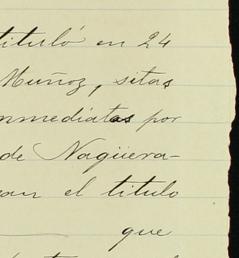 tituló en 24
Muñoz, sitas
nmediatas por
de Nagüera-
an el titulo
que